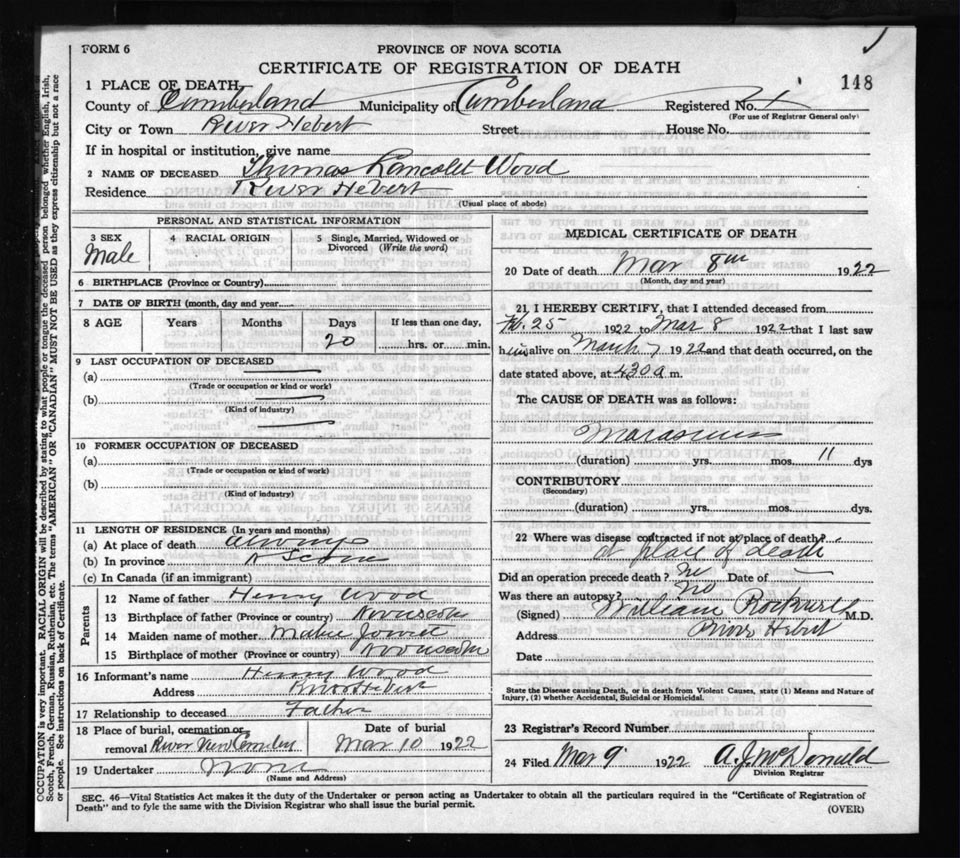 FORM 6
PROVINCE OF NOVA SCOTIA
CERTIFICATE OF REGISTRATION OF DEATH
148
1 PLACE OF DEATH
County of Cumberland Municipality of Cumberland Registered No.
(For use of Registrar General only)
City or Town River Hebert Street House No.
If in hospital or institution, give name
2 NAME OF DECEASED Thomas Lancolet Wood
Residence River Hebert
(Usual place of abode)
PERSONAL AND STATISTICAL INFORMATION
3 SEX Male
4 RACIAL ORIGIN
5 Single, Married, Widowed or Divorced (Write the word)
6 BIRTHPLACE (Province or Country)
7 DATE OF BIRTH (month, day and year)
8 AGE Years Months Days If less than one day,
20 hrs. or min.
9 LAST OCCUPATION OF DECEASED
(a)
(Trade or occupation or kind or work)
(b)
(Kind of industry)
10 FORMER OCCUPATION OF DECEASED
(a)
(Trade or occupation or kind of work)
(b)
(Kind of industry)
11 LENGTH OF RESIDENCE (In years and months)
(a) At place of death always
(b) In province N Scotia
(c) In Canada (if an immigrant)
Parents
12 Name of father Henry Wood
13 Birthplace of father (Province or country) Novascotia
14 Maiden name of mother
15 Birthplace of mother (Province or country) Novascotia
16 Informant's name Henry Wood
Address River Hebert
17 Relationship to deceased Father
18 Place of burial, cremation or removal River View Cemetery
Date of burial Mar 10 1922
19 Undertaker none
(Name and Address)
MEDICAL CERTIFICATE OF DEATH
20 Date of death Mar 8th 1922
(Month, day and year)
21 I HEREBY CERTIFY, that I attended deceased from
Feb. 25 1922 to Mar 8 1922 that I last saw
him alive on March 7 1922 and that death occurred, on the
date stated above, at 430 a m.
The CAUSE OF DEATH was as follows:
Marasmus
(duration) yrs. mos. 11 dys
CONTRIBUTORY
(Secondary)
(duration) yrs. mos. dys.
22 Where was disease contracted if not at place of death?
at place of death
Did an operation precede death? no Date of
Was there an autopsy? no
(Signed) William Rockwell M.D.
Address River Hebert
Date
State the Disease causing Death, or in death from Violent Causes, state (1) Means and Nature of
Injury, (2) whether Accidental, Suicidal or Homicidal.
23 Registrar's Record Number
24 Filed Mar 9 1922 A. J. McDonald
Division Registrar
SEC. 46—Vital Statistics Act makes it the duty of the Undertaker or person acting as Undertaker to obtain all the particulars required in the "Certificate of Registration of
Death" and to fyle the same with the Division Registrar who shall issue the burial permit.
(OVER)
OCCUPATION is very important. RACIAL ORIGIN will be described by stating to what people or tongue the deceased person belonged whether English, Irish,
Scotch, French, German, Russian, Ruthenian, etc. The terms "AMERICAN" OR "CANADIAN" MUST NOT BE USED as they express citizenship but not a race
or people. See instructions on back of Certificate.